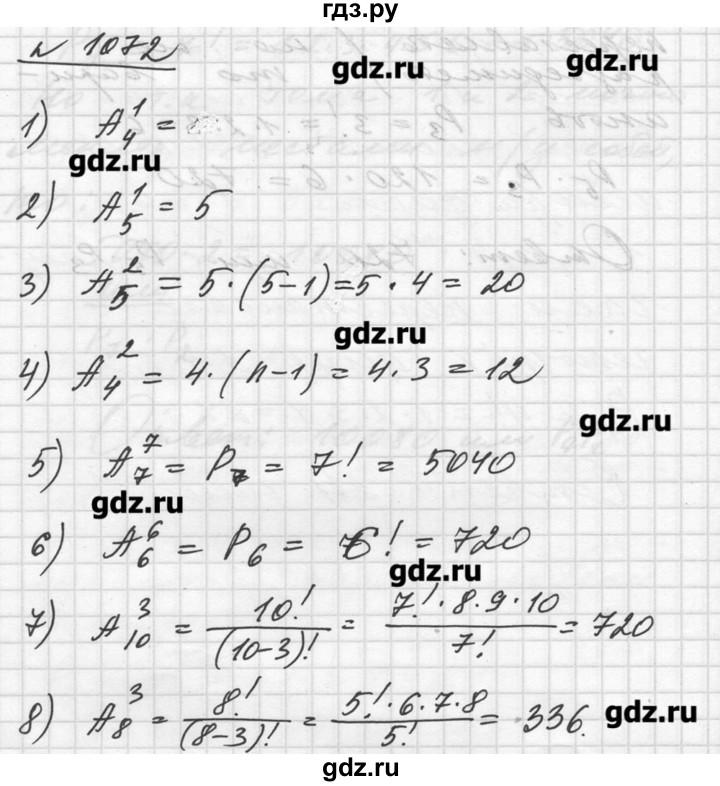 гдз.ру
№ 1072
gdz.ru
gdz.ru
1) A₄¹ =
gdz.ru
2) A₅¹ = 5
3) A₅² = 5·(5-1)=5·4 = 20
gdz.ru
4) A₄² = 4·(n-1) = 4·3 = 12
gdz.ru
5) A₇⁷ = P₇ = 7! = 5040
gdz.ru
6) A₆⁶ = P₆ = 6! = 720
gdz.ru
7) A₁₀³ = 10!/(10-3)! = 7!·8·9·10/7! = 720
8) A₈³ = 8!/(8-3)! = 5!·6·7·8/5! = 336.
gdz.ru
gdz.ru